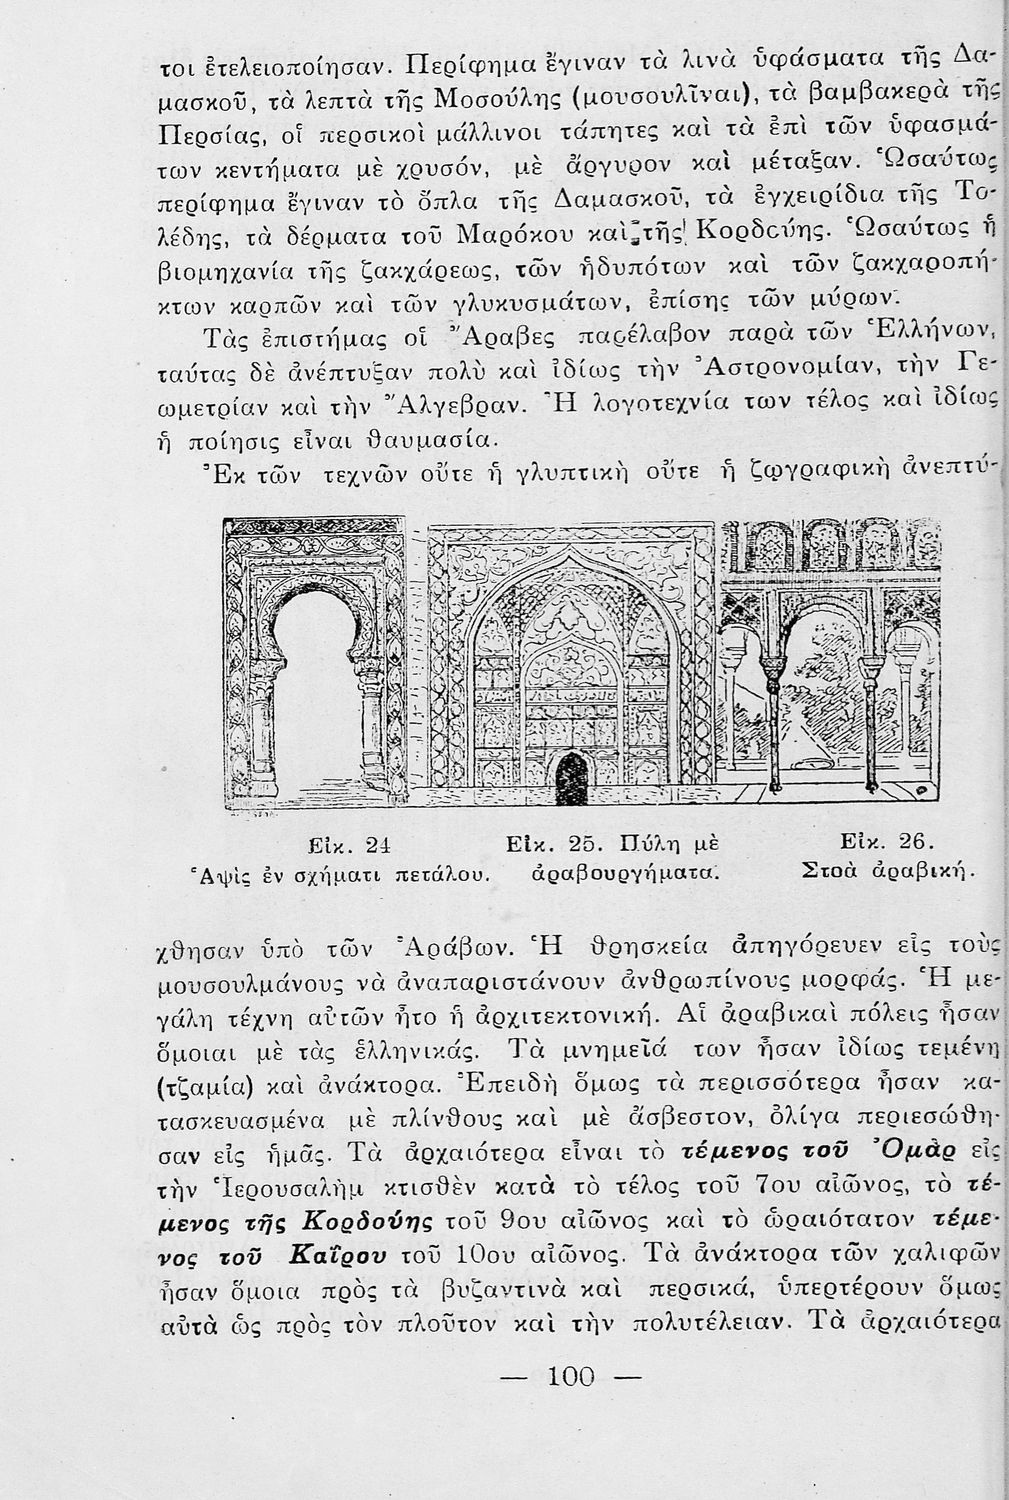 τοι ἐτελειοποίησαν. Περίφημα ἔγιναν τὰ λινὰ ὑφάσματα τῆς Δα-
μασκοῦ, τὰ λεπτὰ τῆς Μοσούλης (μουσουλῖναι), τὰ βαμβακερὰ τῆς
Περσίας, οἱ περσικοὶ μάλλινοι τάπητες καὶ τὰ ἐπὶ τῶν ὑφασμά-
των κεντήματα μὲ χρυσόν, μὲ ἄργυρον καὶ μέταξαν. Ὡσαύτως
περίφημα ἔγιναν τὸ ὅπλα τῆς Δαμασκοῦ, τὰ ἐγχειρίδια τῆς Το-
λέδης, τὰ δέρματα τοῦ Μαρόκου καὶ τῆς Κορδούης. Ὡσαύτως ἡ
βιομηχανία τῆς ζακχάρεως, τῶν ἡδυπότων καὶ τῶν ζακχαροπή-
κτων καρπῶν καὶ τῶν γλυκυσμάτων, ἐπίσης τῶν μύρων.
Τὰς ἐπιστήμας οἱ Ἄραβες παρέλαβον παρὰ τῶν Ἑλλήνων,
ταύτας δὲ ἀνέπτυξαν πολὺ καὶ ἰδίως τὴν Ἀστρονομίαν, τὴν Γε-
ωμετρίαν καὶ τὴν Ἄλγεβραν. Ἡ λογοτεχνία των τέλος καὶ ἰδίως
ἡ ποίησις εἶναι θαυμασία.
Ἐκ τῶν τεχνῶν οὔτε ἡ γλυπτικὴ οὔτε ἡ ζῳγραφικὴ ἀνεπτύ-
Εἰκ. 24
Ἁψὶς ἐν σχήματι πετάλου.
Εἰκ. 25. Πύλη μὲ
ἀραβουργήματα.
Εἰκ. 26.
Στοὰ ἀραβική.
χθησαν ὑπὸ τῶν Ἀράβων. Ἡ θρησκεία ἀπηγόρευεν εἰς τοὺς
μουσουλμάνους νὰ ἀναπαριστάνουν ἀνθρωπίνους μορφάς. Ἡ με-
γάλη τέχνη αὐτῶν ἦτο ἡ ἀρχιτεκτονική. Αἱ ἀραβικαὶ πόλεις ἦσαν
ὅμοιαι μὲ τὰς ἑλληνικάς. Τὰ μνημεῖά των ἦσαν ἰδίως τεμένη
(τζαμία) καὶ ἀνάκτορα. Ἐπειδὴ ὅμως τὰ περισσότερα ἦσαν κα-
τασκευασμένα μὲ πλίνθους καὶ μὲ ἄσβεστον, ὀλίγα περιεσώθη-
σαν εἰς ἡμᾶς. Τὰ ἀρχαιότερα εἶναι τὸ τέμενος τοῦ Ὀμὰρ εἰς
τὴν Ἱερουσαλὴμ κτισθὲν κατὰ τὸ τέλος τοῦ 7ου αἰῶνος, τὸ τέ-
μενος τῆς Κορδούης τοῦ 9ου αἰῶνος καὶ τὸ ὡραιότατον τέμε-
νος τοῦ Καΐρου τοῦ 10ου αἰῶνος. Τὰ ἀνάκτορα τῶν χαλιφῶν
ἦσαν ὅμοια πρὸς τὰ βυζαντινὰ καὶ περσικά, ὑπερτέρουν ὅμως
αὐτὰ ὡς πρὸς τὸν πλοῦτον καὶ τὴν πολυτέλειαν. Τὰ ἀρχαιότερα
— 100 —